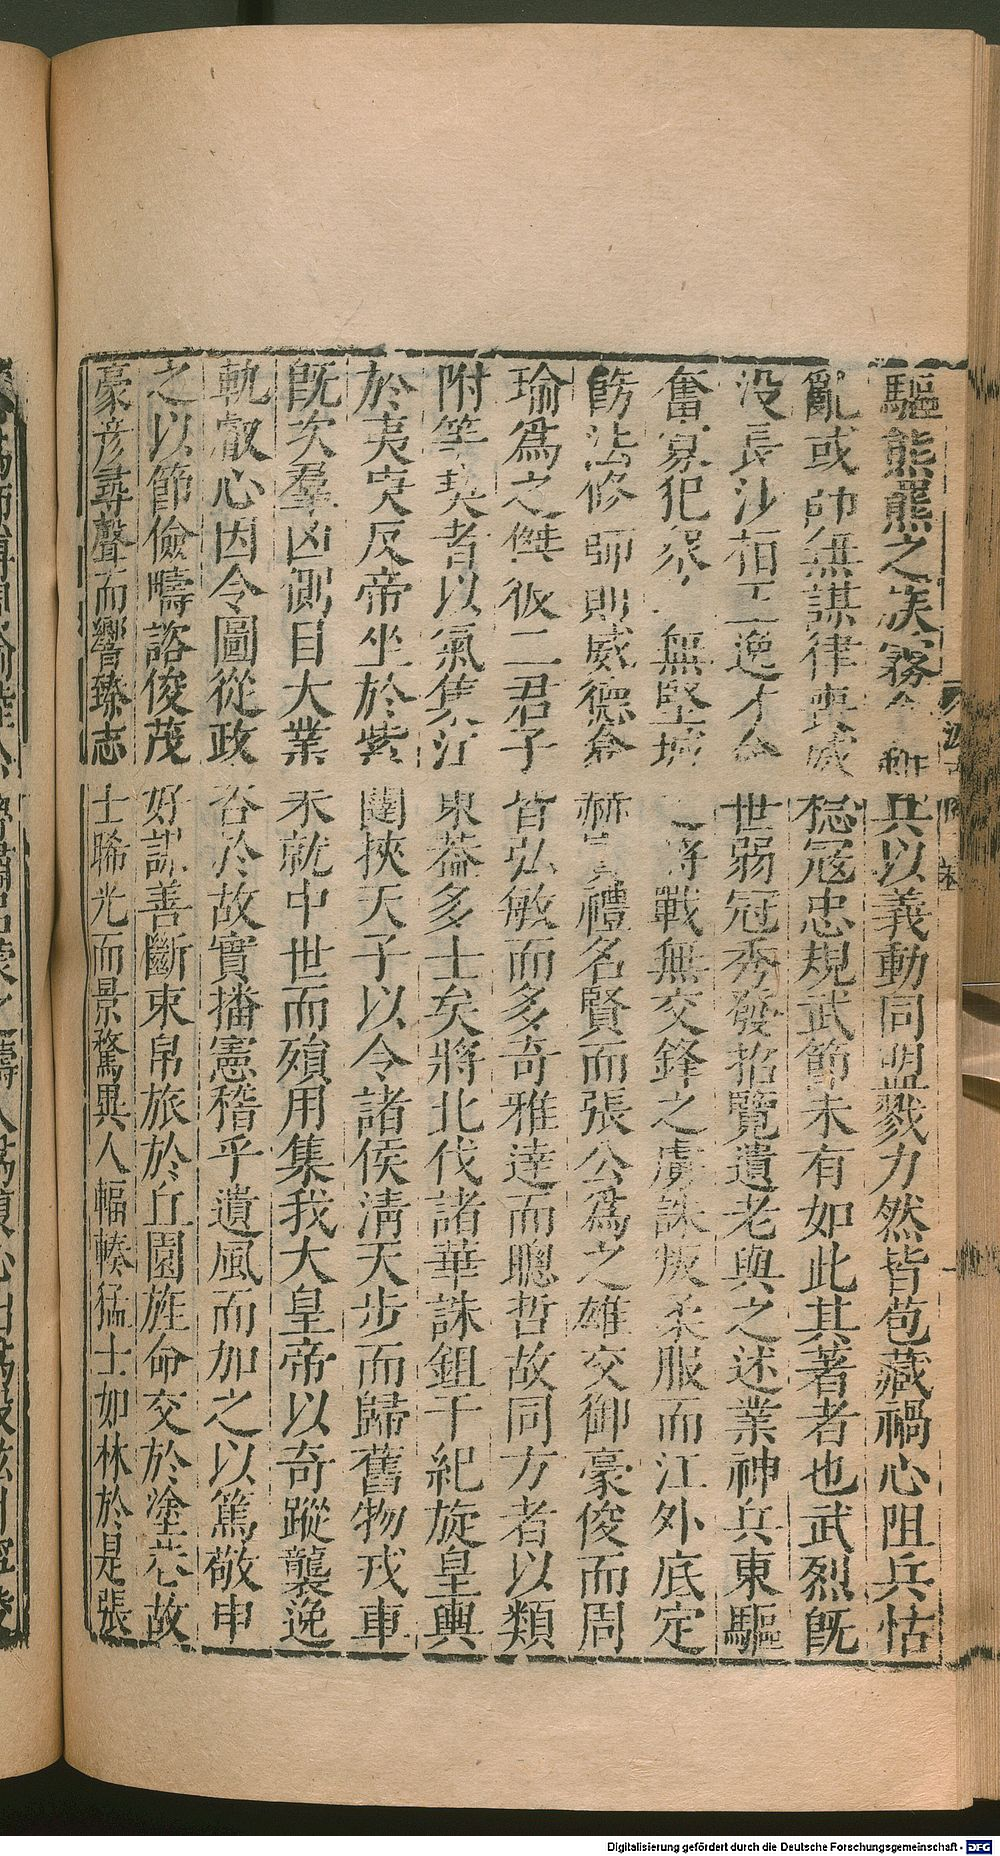 驅熊羆之族霧合 兵以義動同盟戮力然皆苞藏禍心阻兵怙
亂或師無謀律喪威稔寇忠規武節未有如此其著者也武烈旣
没長沙桓王逸才命世弱冠秀發招覽遺老與之述業神兵東驅
奮寡犯衆 無堅城之將戰無交鋒之虜誅叛柔服而江外底定
飭法修師則威德翕赫 禮名賢而張公爲之雄交御豪俊而周
瑜爲之傑彼二君子皆弘敏而多奇雅達而聰哲故同方者以類
附等契者以氣集江東葢多士矣將北伐諸華誅鉏干紀旋皇輿
於夷庚反帝坐於紫闥挾天子以令諸侯淸天步而歸舊物戎車
旣次羣凶側目大業未就中世而殞用集我大皇帝以奇蹤襲逸
軌叡心因令圖從政咨於故實播憲稽乎遺風而加之以篤敬申
之以節儉疇諮俊茂好謀善斷束帛旅於丘園旌命交於塗巷故
豪彦尋聲而響臻志士睎光而景騖異人輻輳猛士如林於是張
Digitalisierung gefördert durch die Deutsche Forschungsgemeinschaft - DFG